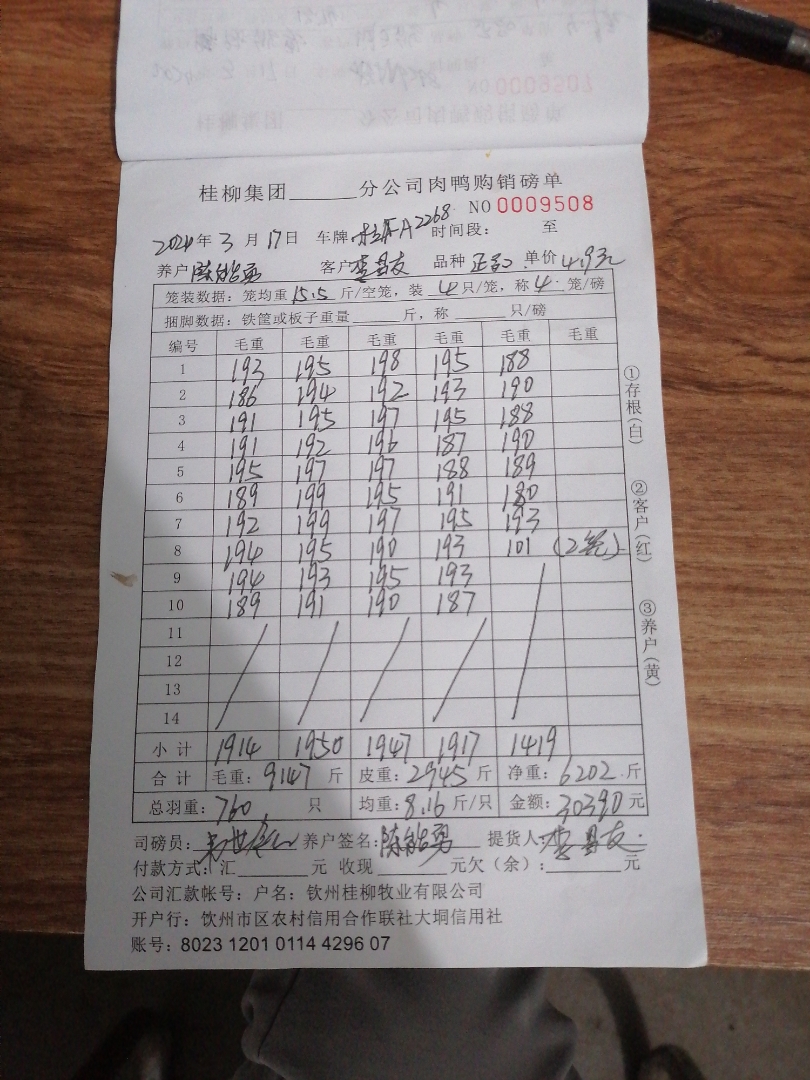 NO 0009507
桂柳集团______分公司肉鸭购销磅单
NO 0009508
2024年 3 月 17日 车牌 A2268 时间段: 至
养户 陈皓勇 客户 李昌友 品种 单价 4.9元
笼装数据：笼均重 15.5 斤/空笼，装 4 只/笼，称 4 笼/磅
捆脚数据：铁筐或板子重量______斤，称______只/磅
编号 毛重 毛重 毛重 毛重 毛重 毛重
1 193 195 198 195 188
2 186 194 192 193 190
3 191 195 197 195 188
4 191 192 196 187 190
5 195 197 197 188 189
6 189 199 195 191 180
7 192 199 197 195 193
8 194 195 190 193 101 (2笼)
9 194 193 195 193
10 189 191 190 187
11
12
13
14
小计 1914 1950 1947 1917 1419
合计 毛重：9147 斤 皮重：2945 斤 净重：6202 斤
总羽重：760 只 均重：8.16 斤/只 金额：30390 元
司磅员： 养户签名：陈皓勇 提货人：李昌友
付款方式：汇______元 收现______元欠（余）：______元
公司汇款帐号：户名：钦州桂柳牧业有限公司
开户行：钦州市区农村信用合作联社大垌信用社
账号：8023 1201 0114 4296 07
①存根(白)
②客户(红)
③养户(黄)